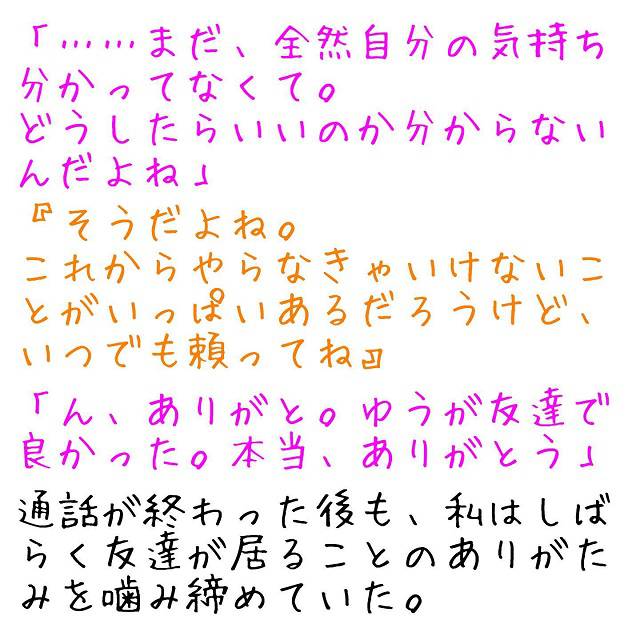 「……まだ、全然自分の気持ち
分かってなくて。
どうしたらいいのか分からない
んだよね」
『そうだよね。
これからやらなきゃいけないこ
とがいっぱいあるだろうけど、
いつでも頼ってね』
「ん、ありがと。ゆうが友達で
良かった。本当、ありがとう」
通話が終わった後も、私はしば
らく友達が居ることのありがた
みを噛み締めていた。